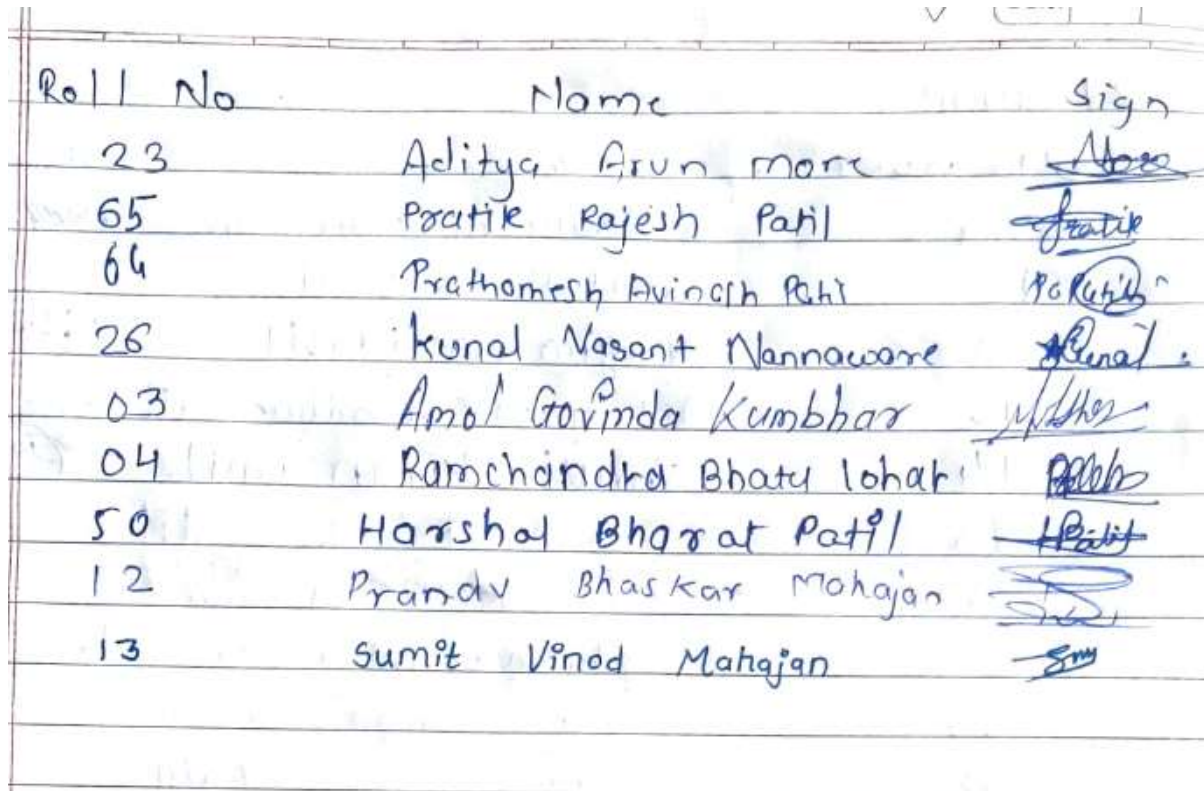 Roll No Name Sign
23 Aditya Arun more More
65 Pratik Rajesh Patil Pratik
64 Prathomesh Avinash Patil
26 kunal Vasant Nannaware Kunal
03 Amol Govinda Kumbhar
04 Ramchandra Bhatu lohar
50 Harshal Bharat Patil HPatil
12 Pranav Bhaskar Mahajan
13 Sumit Vinod Mahajan